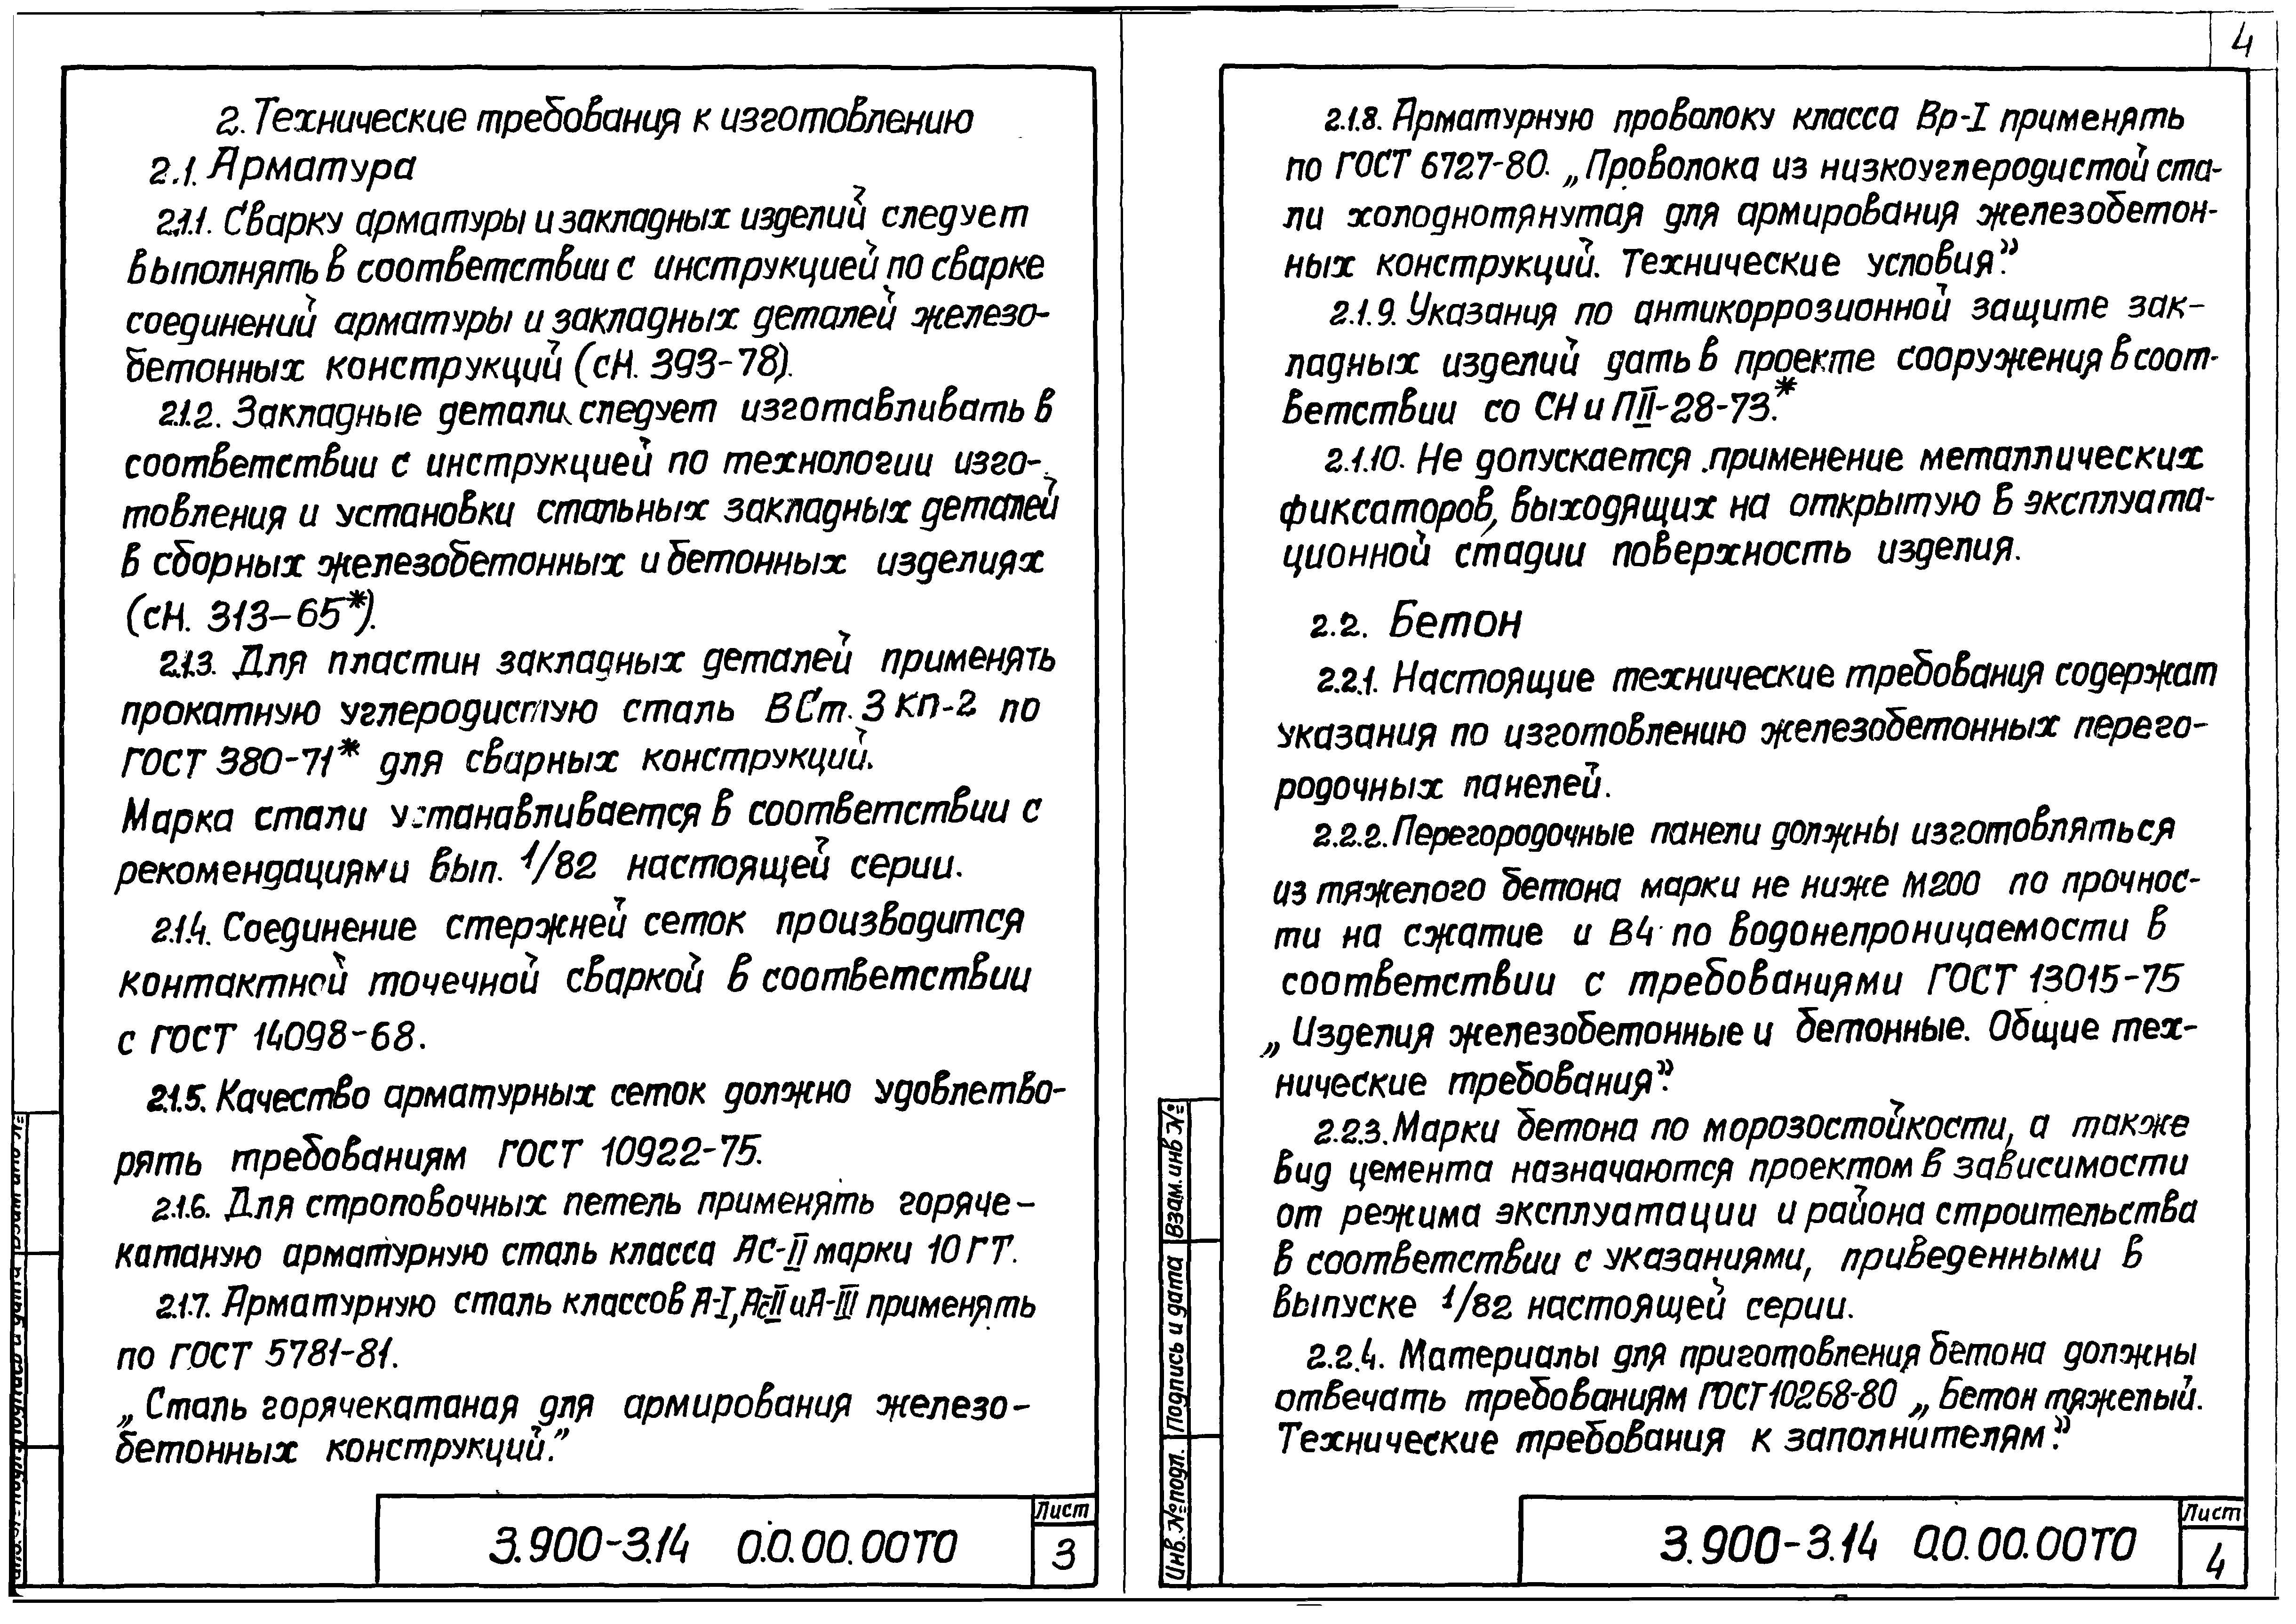 4
2. Технические требования к изготовлению
2.1. Арматура
2.1.1. Сварку арматуры и закладных изделий следует
выполнять в соответствии с инструкцией по сварке
соединений арматуры и закладных деталей железо-
бетонных конструкций (СН. 393-78).
2.1.2. Закладные детали следует изготавливать в
соответствии с инструкцией по технологии изго-
товления и установки стальных закладных деталей
в сборных железобетонных и бетонных изделиях
(СН. 313-65*).
2.1.3. Для пластин закладных деталей применять
прокатную углеродистую сталь ВСт.3кп-2 по
ГОСТ 380-71* для сварных конструкций.
Марка стали устанавливается в соответствии с
рекомендациями вып. 1/82 настоящей серии.
2.1.4. Соединение стержней сеток производится
контактной точечной сваркой в соответствии
с ГОСТ 14098-68.
2.1.5. Качество арматурных сеток должно удовлетво-
рять требованиям ГОСТ 10922-75.
2.1.6. Для строповочных петель применять горяче-
катаную арматурную сталь класса АС-II марки 10ГТ.
2.1.7. Арматурную сталь классов А-I, Ас-II и А-III применять
по ГОСТ 5781-81.
„Сталь горячекатаная для армирования железо-
бетонных конструкций."
3.900-3.14 0.0.00.00ТО
Лист
3
2.1.8. Арматурную проволоку класса Вр-I применять
по ГОСТ 6727-80. „Проволока из низкоуглеродистой ста-
ли холоднотянутая для армирования железобетон-
ных конструкций. Технические условия".
2.1.9. Указания по антикоррозионной защите зак-
ладных изделий дать в проекте сооружения в соот-
ветствии со СН и П II-28-73.*
2.1.10. Не допускается применение металлических
фиксаторов, выходящих на открытую в эксплуата-
ционной стадии поверхность изделия.
2.2. Бетон
2.2.1. Настоящие технические требования содержат
указания по изготовлению железобетонных перего-
родочных панелей.
2.2.2. Перегородочные панели должны изготовляться
из тяжелого бетона марки не ниже М200 по прочнос-
ти на сжатие и В4 по водонепроницаемости в
соответствии с требованиями ГОСТ 13015-75
„Изделия железобетонные и бетонные. Общие тех-
нические требования".
2.2.3. Марки бетона по морозостойкости, а также
вид цемента назначаются проектом в зависимости
от режима эксплуатации и района строительства
в соответствии с указаниями, приведенными в
выпуске 1/82 настоящей серии.
2.2.4. Материалы для приготовления бетона должны
отвечать требованиям ГОСТ 10268-80 „Бетон тяжелый.
Технические требования к заполнителям".
Инв. № подл. Подпись и дата Взам. инв №
3.900-3.14 0.0.00.00ТО
Лист
4